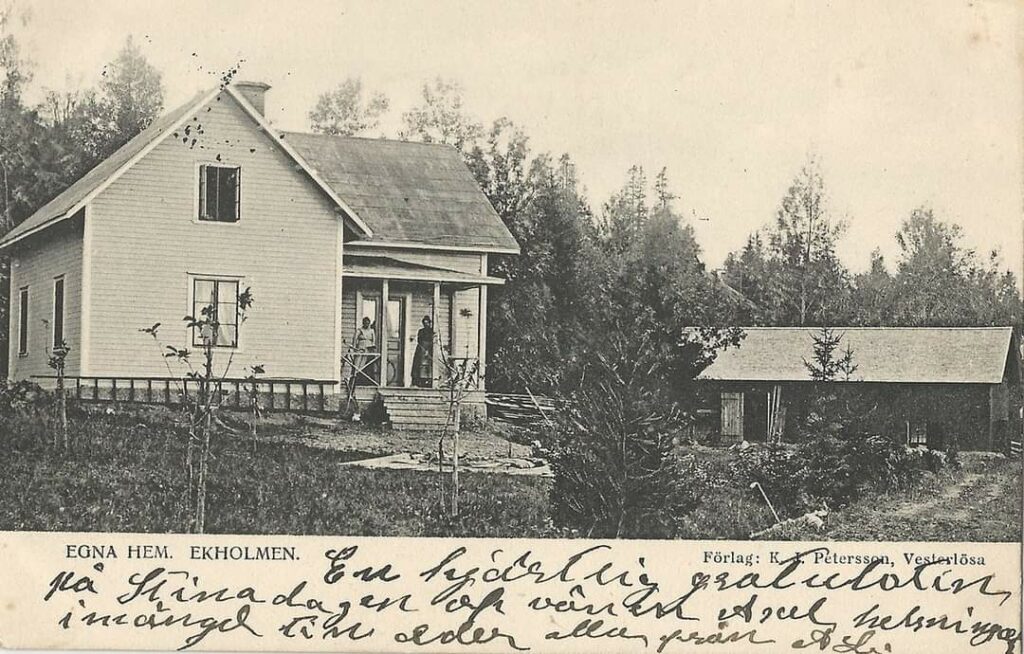 EGNA HEM. EKHOLMEN.
Förlag: K. J. Petersson, Vesterlösa
En hjärtlig gratulation
på Stinadagen af vännen Axel helsningar
i mängd till eder alla från